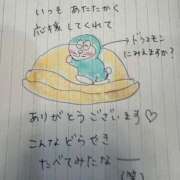 いつも あたたかく
応援 してくれて
ドラえモン
にみえますか？
ありがとうございます♡
こんな どらやき
たべてみたなー
(笑)